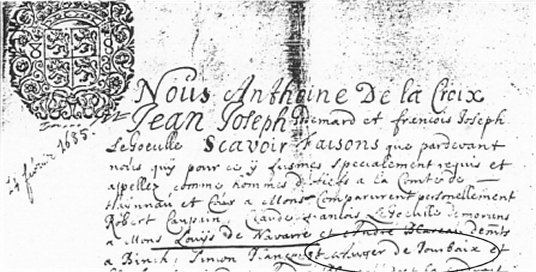 Nous Anthoine De la Croix
Jean Joseph Gremard et francois Joseph
LeGoeulle Scavoir Faisons que pardevant
nous quy pour ce y fusmes specialement requis et
appellez comme hommes de fiefs a la Comté de
Haynnau et Cour a Mons Comparurent personellement
Robert Caupain, Claude francois Le Goeulle demorans
a Mons Louijs de Navarre et Andre Blareau demts
a Binch, Simon Francois de Jourbaix et
24 febvrier 1685.